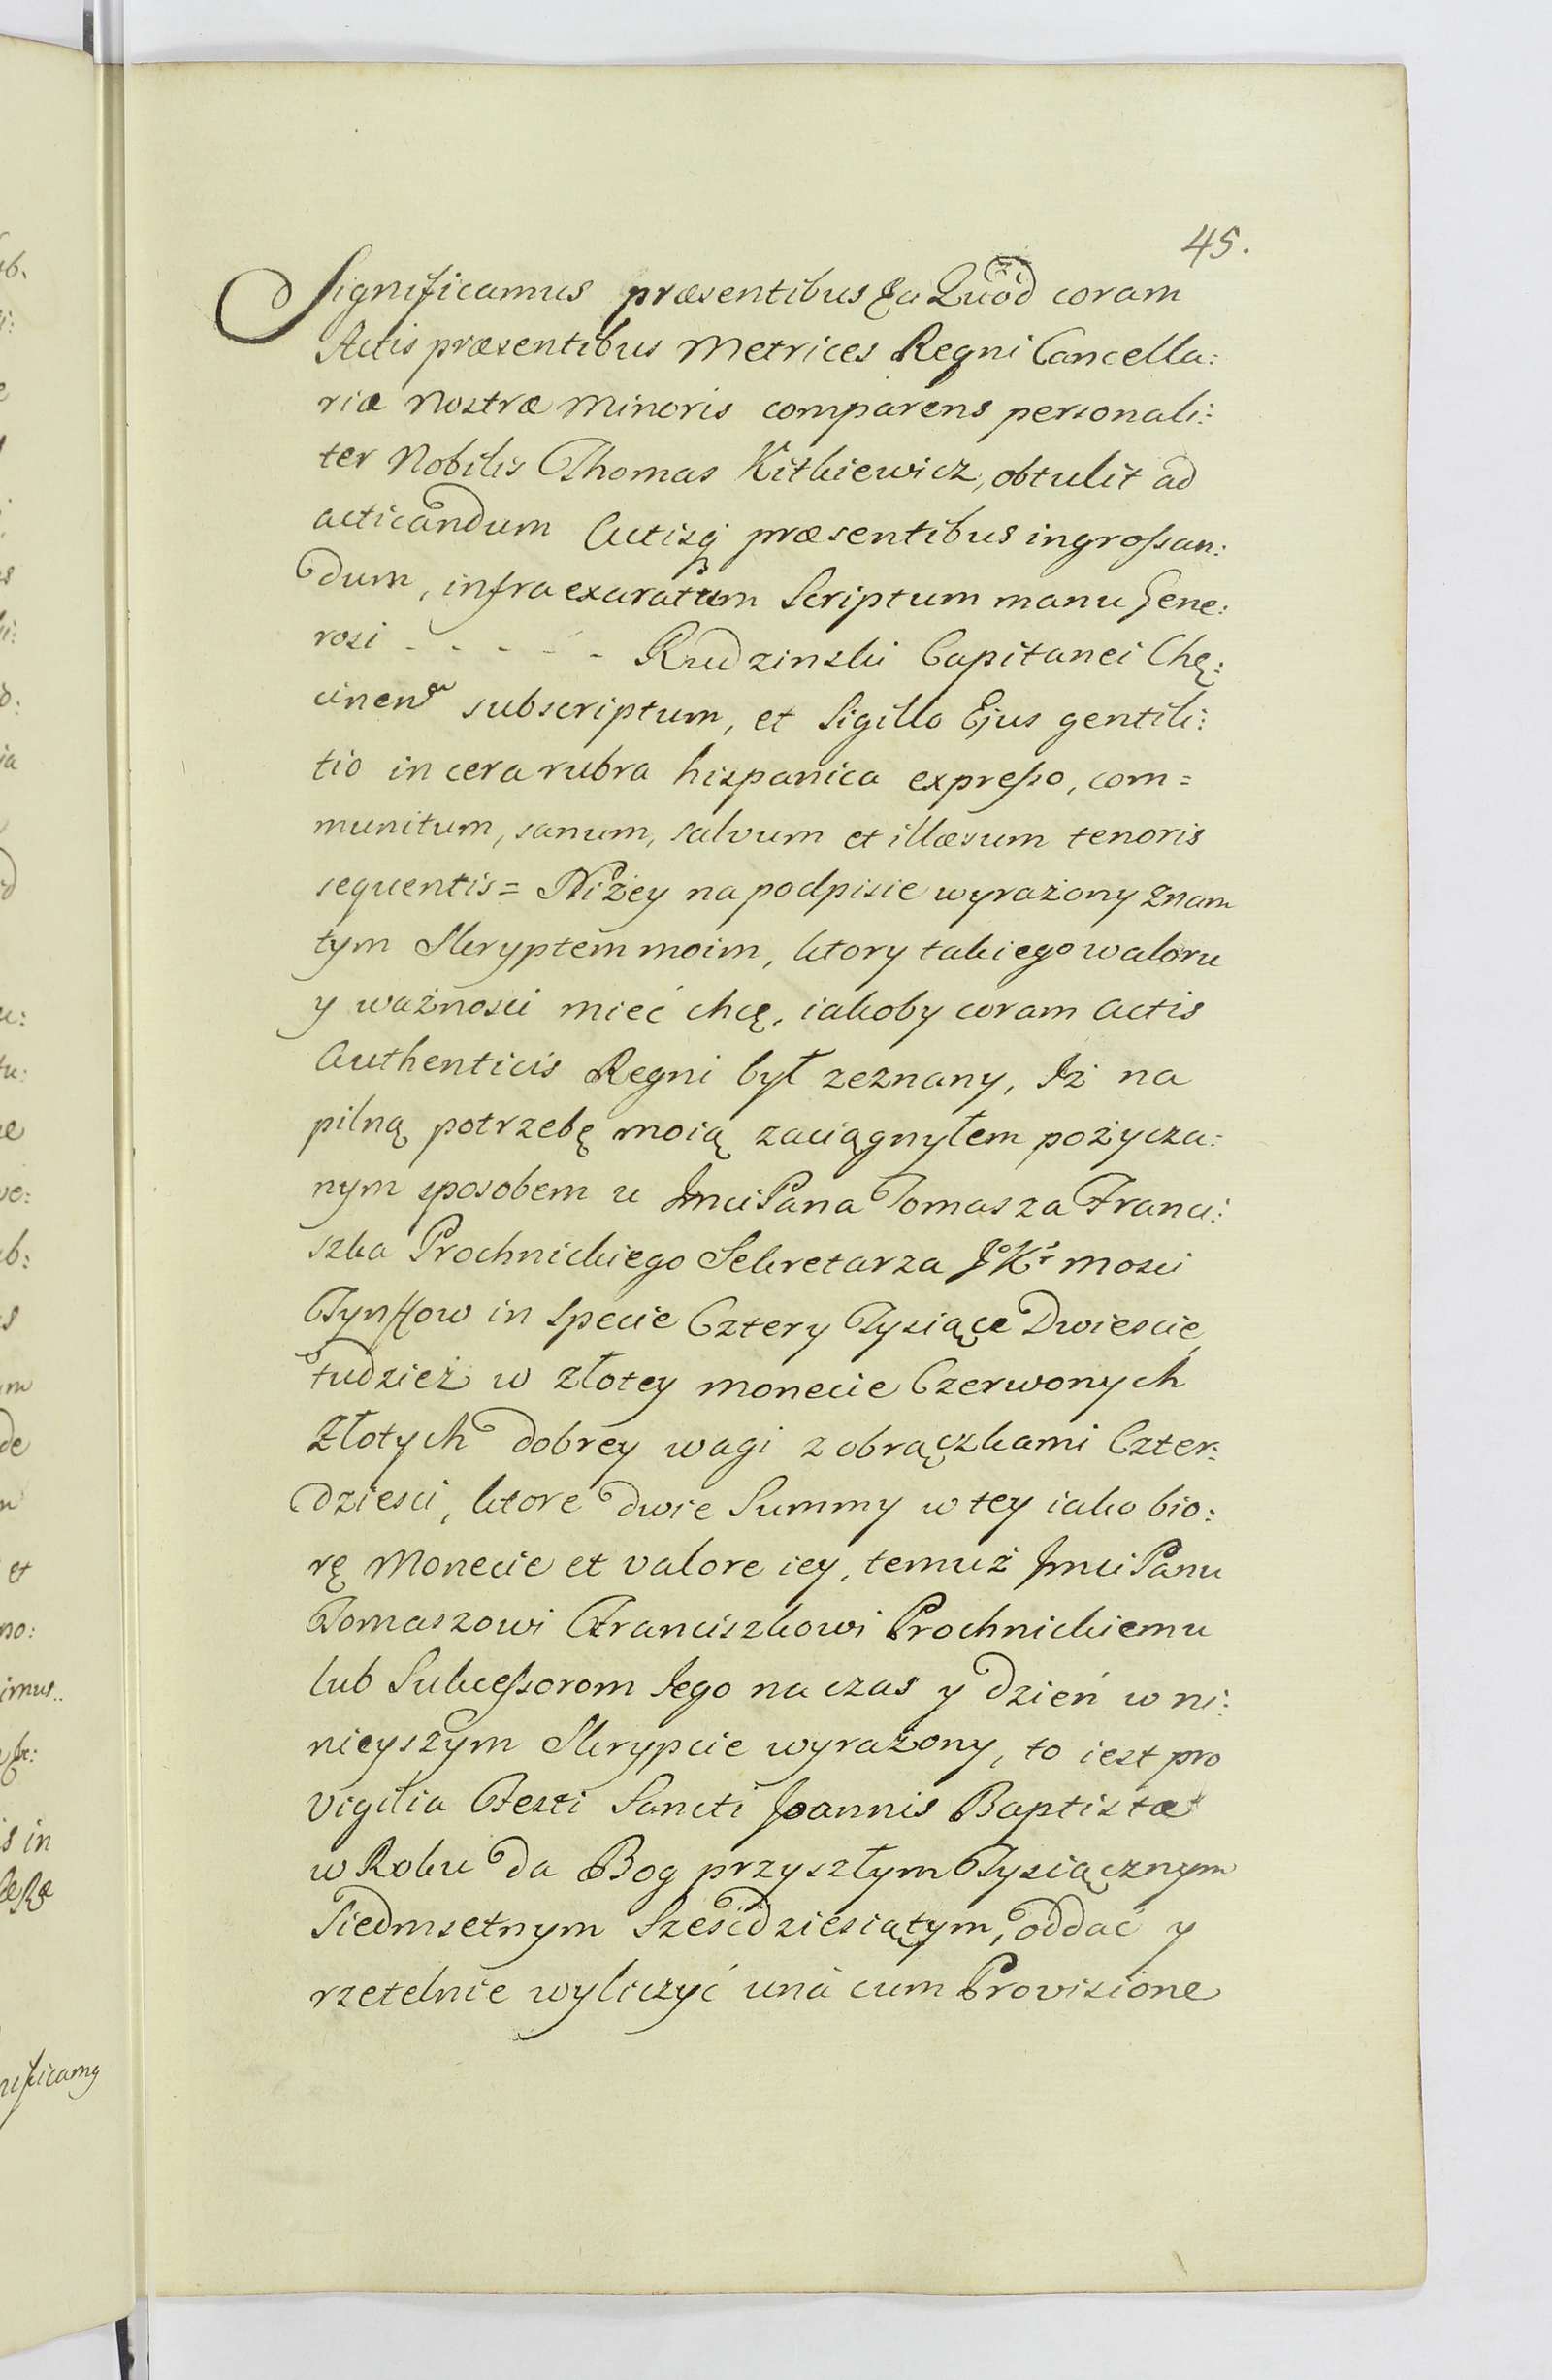 45.
Significamus præsentibus &a Quod coram
Actis præsentibus Metrices Regni Cancella:
riæ Nostræ Minoris comparens personali:
ter Nobilis Thomas Kitkiewicz, obtulit ad
acticandum Actisq; præsentibus ingrossan:
dum, infra exaratum Scriptum manu Gene:
rosi - - - - - Rudzinski Capitanei Chę:
cinen subscriptum, et Sigillo Ejus gentili:
tio in cera rubra hispanica expresso, com=
munitum, sanum, salvum et illæsum tenoris
sequentis = Niżey na podpisie wyrażony znam
tym Skryptem moim, ktory takiego waloru
y ważnosci mieć chcę, iakoby coram Actis
Authenticis Regni był zeznany, Iż na
pilną potrzebę moią zaciągnyłem pożycza:
nym sposobem u Jmci Pana Tomasza Franci:
szka Prochnickiego Sekretarza Jº Kʳ Mosci
Tynffow in Specie Cztery Tysiące Dwiescie,
tudzież w złotey monecie Czerwonych
Złotych dobrey wagi z obrączkami Czter:
dziesci, ktore dwie Summy w tey iako bio:
rę Monecie et valore iey, temuż Jmci Panu
Tomaszowi Franciszkowi Prochnickiemu
lub Sukcessorom Jego na czas y dzień w ni:
nieyszym Skrypcie wyrażony, to iest pro
Vigilia Festi Sancti Joannis Baptistæ
w Roku da Bog przyszłym Tysiącznym
Siedmsetnym Sześćdziesiątym, oddać y
rzetelnie wyliczyć unà cum Provisione